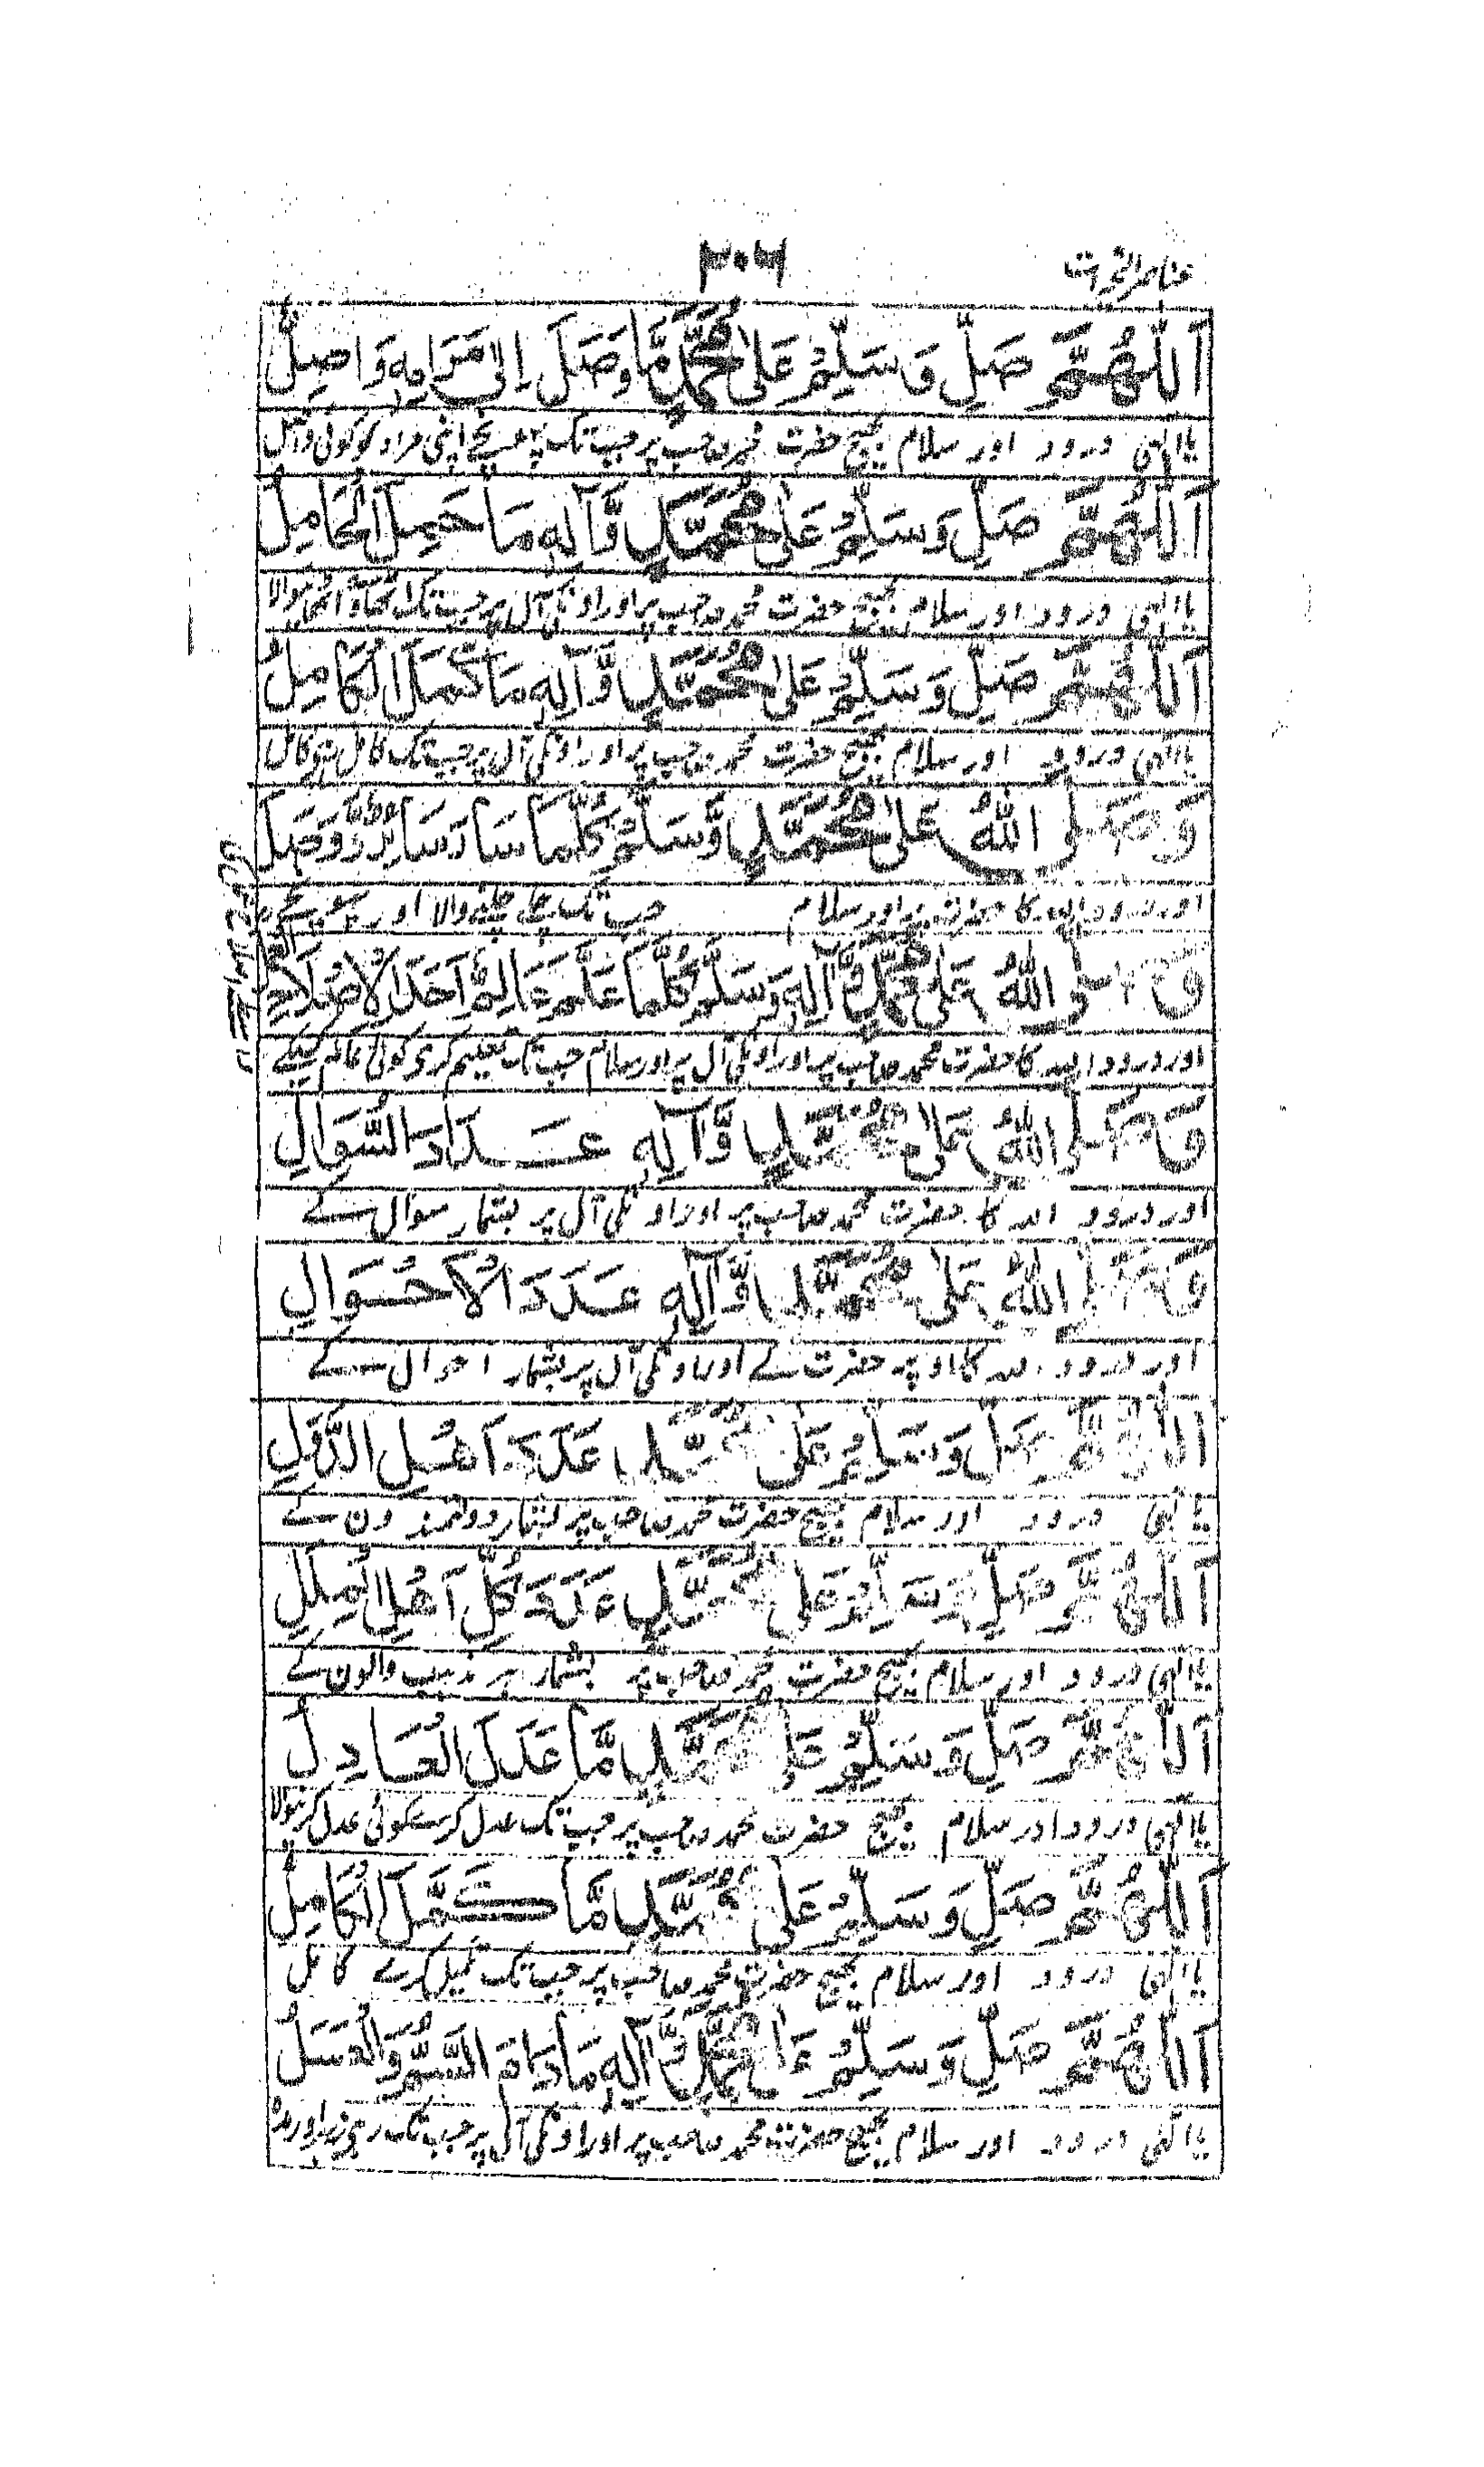 عناصر الخیرات
۳۰۶
اَللّٰهُمَّ صَلِّ وَسَلِّمْ عَلٰى مُحَمَّدٍ مَّا وَصَلَ اِلٰى مَرَامِهٖ وَاصِلٌ
یا الہی درود اور سلام بھیج حضرت محمد صاحب پر جب تک پہونچے اپنی مراد کو کوئی واصل
اَللّٰهُمَّ صَلِّ وَسَلِّمْ عَلٰى مُحَمَّدٍ وَّآلِهٖ مَا حَمِلَ الْحَامِلُ
یا الہی درود اور سلام بھیج حضرت محمد صاحب پر اور اونکی آل پر جب تک اٹھاوے اٹھانیوالا
اَللّٰهُمَّ صَلِّ وَسَلِّمْ عَلٰى مُحَمَّدٍ وَّآلِهٖ مَا كَمَلَ الْكَامِلُ
یا الہی درود اور سلام بھیج حضرت محمد صاحب پر اور اونکی آل پر جب تک کامل ہو کامل
وَصَلَّى اللهُ عَلٰى مُحَمَّدٍ وَّسَلَّمْ كُلَّمَا سَارَ سَايِرٌ وَّوَصَلَ
اور درود اللہ کا حضرت پر اور سلام جب تک چلے چلنے والا اور پہونچے
وَصَلَّى اللهُ عَلٰى مُحَمَّدٍ وَّآلِهٖ وَسَلَّمْ كُلَّمَا عَلَّمَ عَالِمٌ اَحَدًا لِاِصْلَاحِ
اور درود اللہ کا حضرت محمد صاحب پر اور اونکی آل پر اور سلام جب تک تعلیم کری کوئی عالم کیلئے
وَصَلَّى اللهُ عَلٰى مُحَمَّدٍ وَّآلِهٖ عَدَدَ السُّوَالِ
اور درود اللہ کا حضرت محمد صاحب پر اور اونکی آل پر بشمار سوال کے
وَصَلَّى اللهُ عَلٰى مُحَمَّدٍ وَّآلِهٖ عَدَدَ الْاَحْوَالِ
اور درود اللہ کا اوپر حضرت کے اور اونکی آل پر بشمار احوال کے
اَللّٰهُمَّ صَلِّ وَسَلِّمْ عَلٰى مُحَمَّدٍ عَدَدَ اَهْلِ الدُّوَلِ
یا الہی درود اور سلام بھیج حضرت محمد صاحب پر بشمار دولتمندون کے
اَللّٰهُمَّ صَلِّ وَسَلِّمْ عَلٰى مُحَمَّدٍ عَدَدَ كُلِّ اَهْلِ الْمِلَلِ
یا الہی درود اور سلام بھیج حضرت محمد صاحب پر بشمار ہر مذہب والون کے
اَللّٰهُمَّ صَلِّ وَسَلِّمْ عَلٰى مُحَمَّدٍ مَّا عَدَلَ الْعَادِلُ
یا الہی درود اور سلام بھیج حضرت محمد صاحب پر جب تک عدل کرے کوئی عدل کرنیوالا
اَللّٰهُمَّ صَلِّ وَسَلِّمْ عَلٰى مُحَمَّدٍ مَّا كَمَّلَ الْكَامِلُ
یا الہی درود اور سلام بھیج حضرت محمد صاحب پر جب تک تکمیل کرے کامل
اَللّٰهُمَّ صَلِّ وَسَلِّمْ عَلٰى مُحَمَّدٍ وَّآلِهٖ مَا دَامَ السَّمُّ وَالْعَسَلُ
یا الہی درود اور سلام بھیج حضرت محمد صاحب پر اور اونکی آل پر جب تک رہی زہر اور شہد